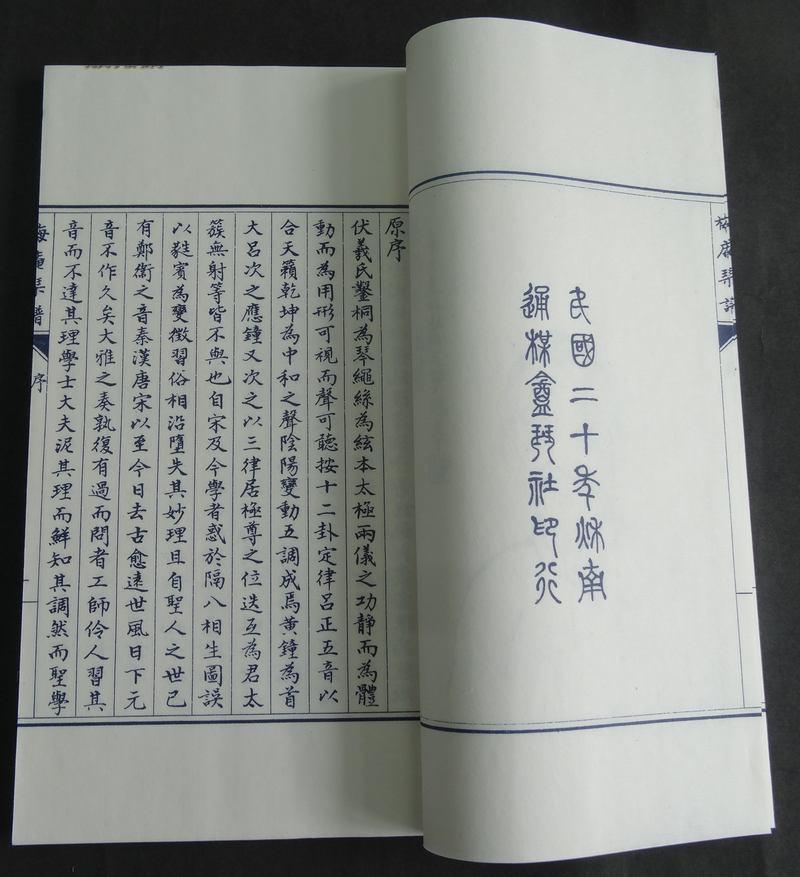 梅庵琴譜
民國二十年秋南
通楳盦琴社印行
原序
伏羲氏鑿桐為琴繩絲為絃本太極兩儀之功靜而為體
動而為用形可視而聲可聽按十二卦定律呂正五音以
合天籟乾坤為中和之聲陰陽變動五調成焉黃鐘為首
大呂次之應鐘又次之以三律居極尊之位迭互為君太
簇無射等皆不與也自宋及今學者惑於隔八相生圖誤
以蕤賓為變徵習俗相沿墮失其妙理且自聖人之世已
有鄭衞之音秦漢唐宋以至今日去古愈遠世風日下元
音不作久矣大雅之奏孰復有過而問者工師伶人習其
音而不達其理學士大夫泥其理而鮮知其調然而聖學
梅庵琴譜
序